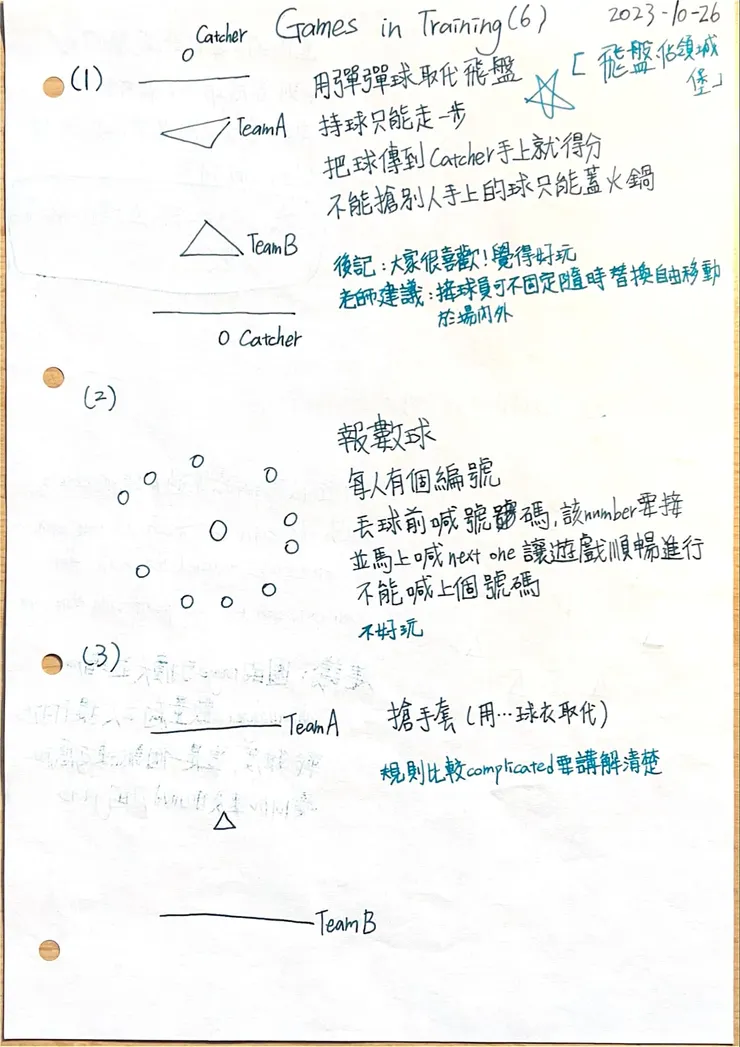 Games in Training(6)
2023-10-26
Catcher
(1)
用彈彈球取代飛盤
[飛盤佔領城
堡」
TeamA
持球只能走一步
把球傳到Catcher手上就得分
不能搶別人手上的球只能蓋火鍋
TeamB
後記:大家很喜歡!覺得好玩
老師建議:接球員可不固定隨時替換自由移動
於場內外
Catcher
(2)
報數球
每人有個編號
丟球前喊號碼,該number要接
並馬上喊next one 讓遊戲順暢進行
不能喊上個號碼
不好玩
(3)
TeamA
搶手套(用…球衣取代)
規則比較complicated要講解清楚
TeamB